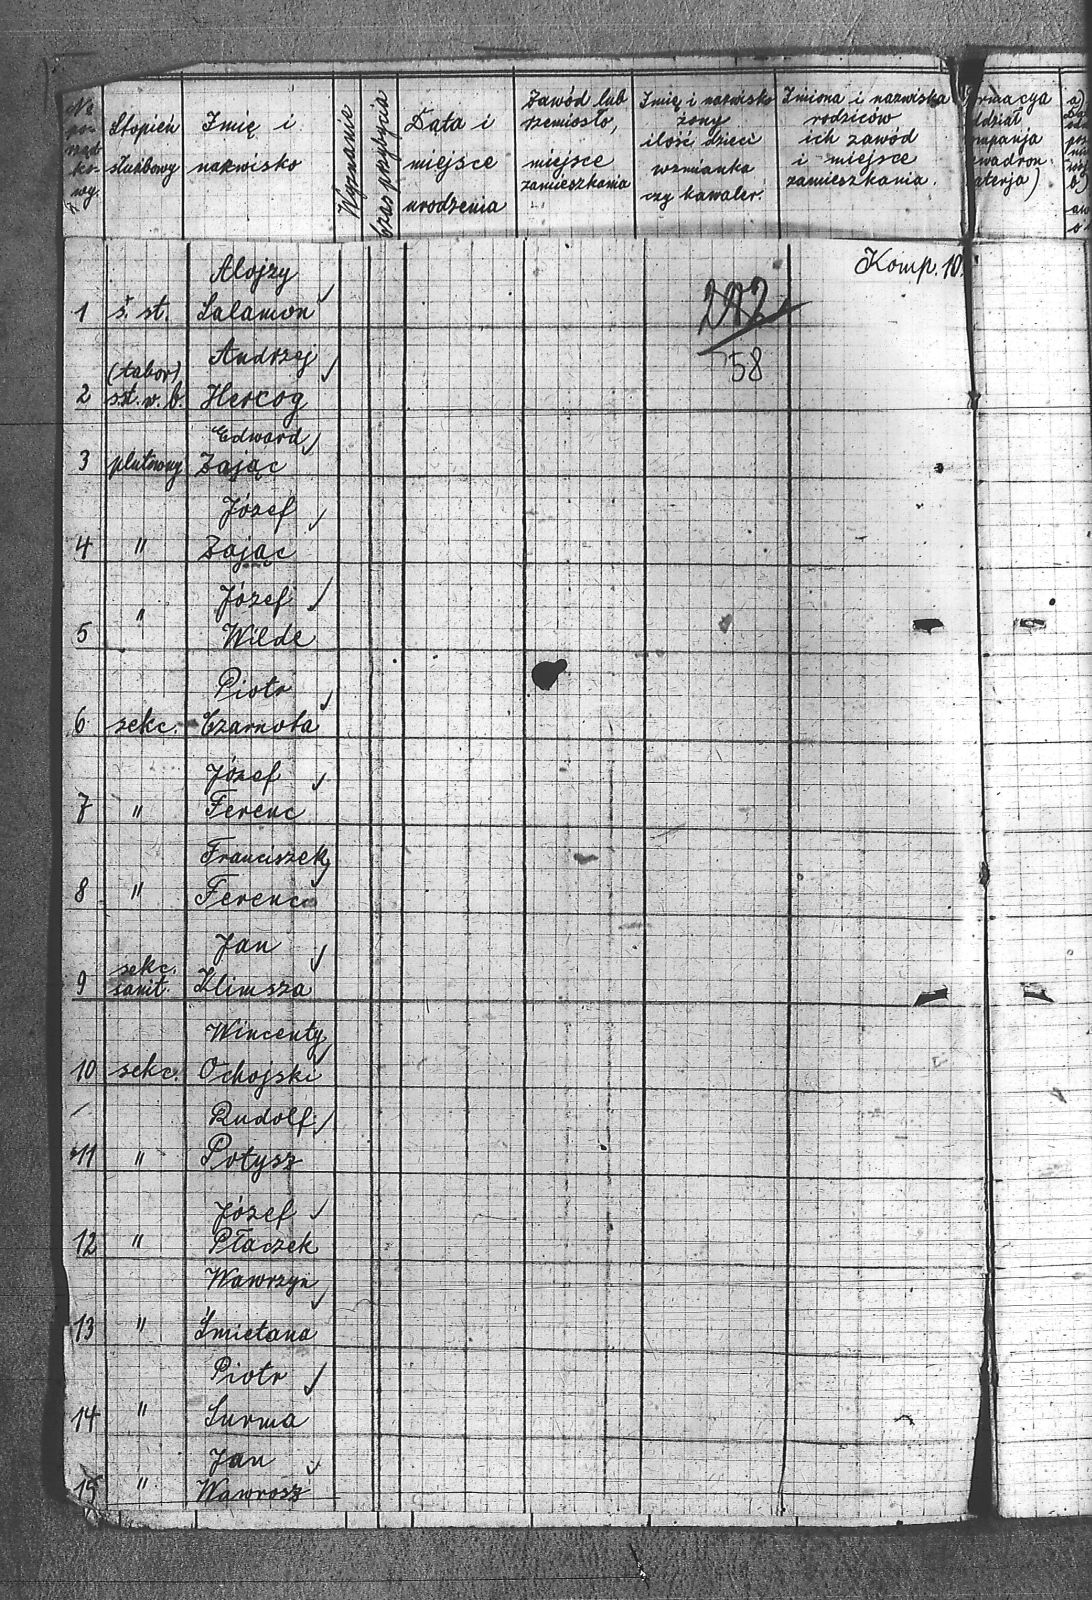 No
po-
rząd-
ko-
wy.
Stopień
służbowy
Imię i
nazwisko
Wyznanie
Czas przybycia
Data i
miejsce
urodzenia
Zawód lub
rzemiosło,
miejsce
zamieszkania
Imię i nazwisko
żony
ilość dzieci
wzmianka
czy kawaler.
Imiona i nazwiska
rodziców
ich zawód
i miejsce
zamieszkania.
ormacya
ddział
mpanja
wadron.
aterja)
a)
Komp. 10.
58
Alojzy
1 s. st. Salamon
Andrzej
(tabor)
2 s.st. w. b. Hercog
Edward
3 plutowny Zając
Józef
4 " Zając
Józef
5 " Wilde
Piotr
6 sekc. Czarnota
Józef
7 " Ferenc
Franciszek
8 " Ferenc
Jan
sekc.
9 sanit. Klimsza
Wincenty
10 sekc. Ochojski
Rudolf
11 " Potysz
Józef
12 " Płaczek
Wawrzyn
13 " Śmietana
Piotr
14 " Surma
Jan
15 " Wawrosz